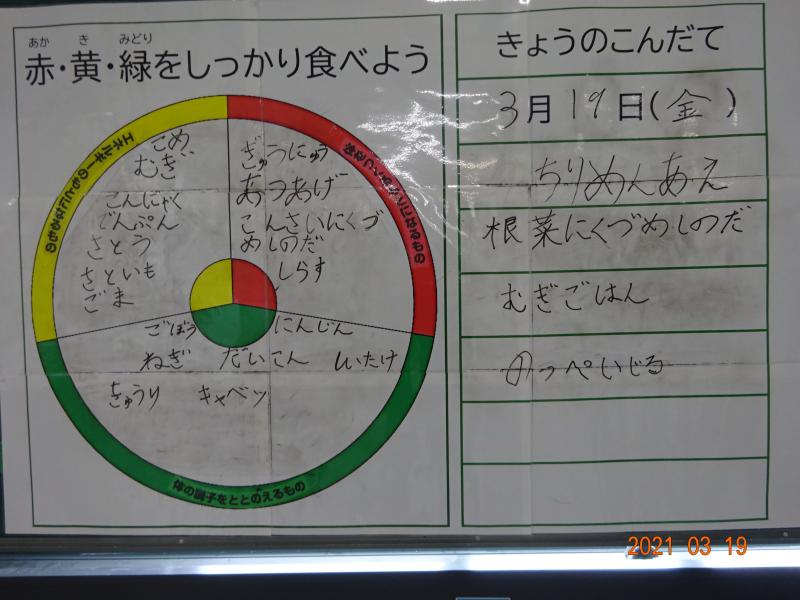 あか き みどり
赤・黄・緑をしっかり食べよう
エネルギーのもとになるもの
こめ
むぎ
こんにゃく
でんぷん
さとう
さといも
ごま
体をつくるもとになるもの
ぎゅうにゅう
あつあげ
こんさいにくづ
めしのだ
しらす
ごぼう にんじん
ねぎ だいこん しいたけ
きゅうり キャベツ
体の調子をととのえるもの
きょうのこんだて
3月19日(金)
ちりめんあえ
根菜にくづめしのだ
むぎごはん
のっぺいじる
2021 03 19